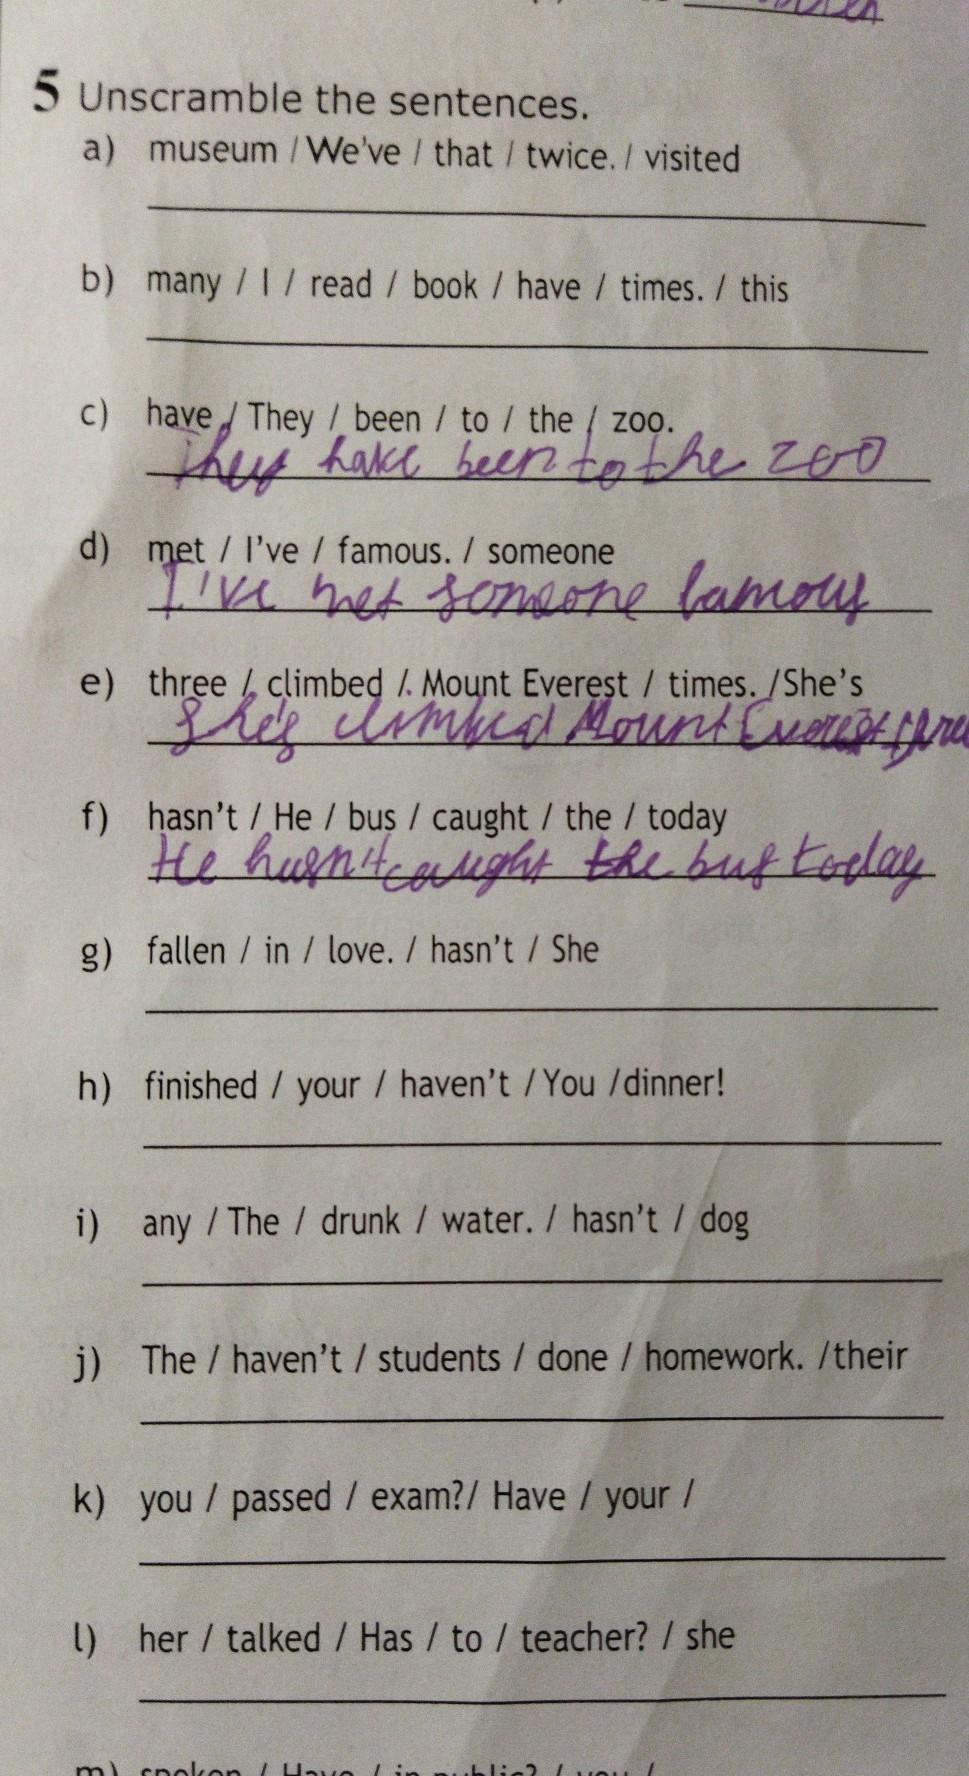 5 Unscramble the sentences.
a) museum / We've / that / twice. / visited
b) many / I / read / book / have / times. / this
c) have / They / been / to / the / zoo.
They have been to the zoo
d) met / I've / famous. / someone
I've met someone famous
e) three / climbed / Mount Everest / times. / She's
She's climbed Mount Everest three
f) hasn't / He / bus / caught / the / today
He hasn't caught the bus today
g) fallen / in / love. / hasn't / She
h) finished / your / haven't / You / dinner!
i) any / The / drunk / water. / hasn't / dog
j) The / haven't / students / done / homework. / their
k) you / passed / exam? / Have / your /
l) her / talked / Has / to / teacher? / she
m) spoken / Have / in public? / you /